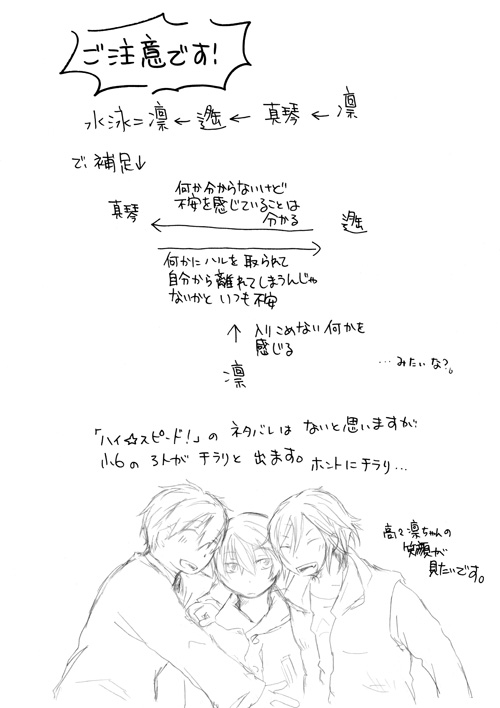 ご注意です!
水泳=凛←遙←真琴←凛
で、補足↓
何か分からないけど
不安を感じていることは
分かる
真琴
遙
何かにハルを取られて
自分から離れてしまうんじゃ
ないかといつも不安
↑ 入りこめない何かを
感じる
凛
…みたいな?。
「ハイ☆スピード!」の ネタバレは ないと思いますが
小6の 3人が チラリと 出ます。ホントにチラリ…
高2凛ちゃんの
笑顔が
見たいです。